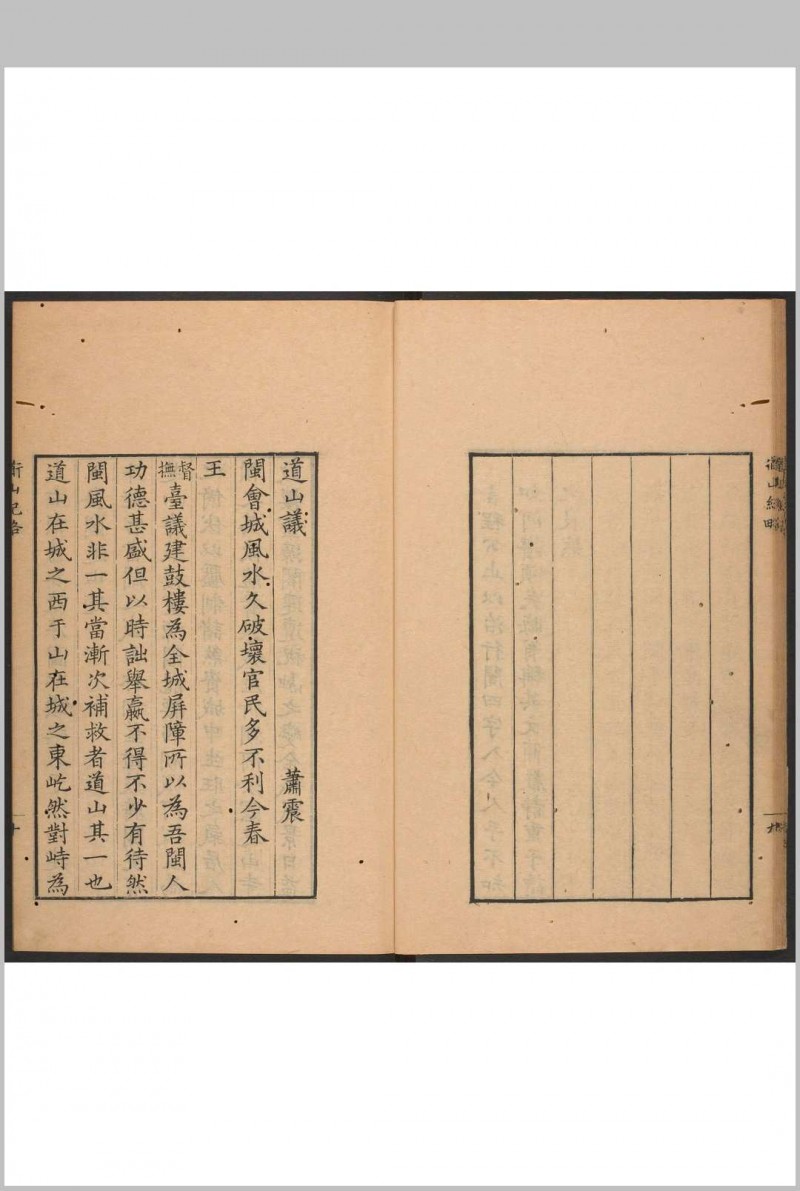 道山議 蕭震
閩會城風水久破壞官民多不利今春
王
督撫臺議建鼓樓為全城屏障所以為吾閩人
功德甚盛但以時詘舉嬴不得不少有待然
閩風水非一其當漸次補救者道山其一也
道山在城之西于山在城之東屹然對峙為